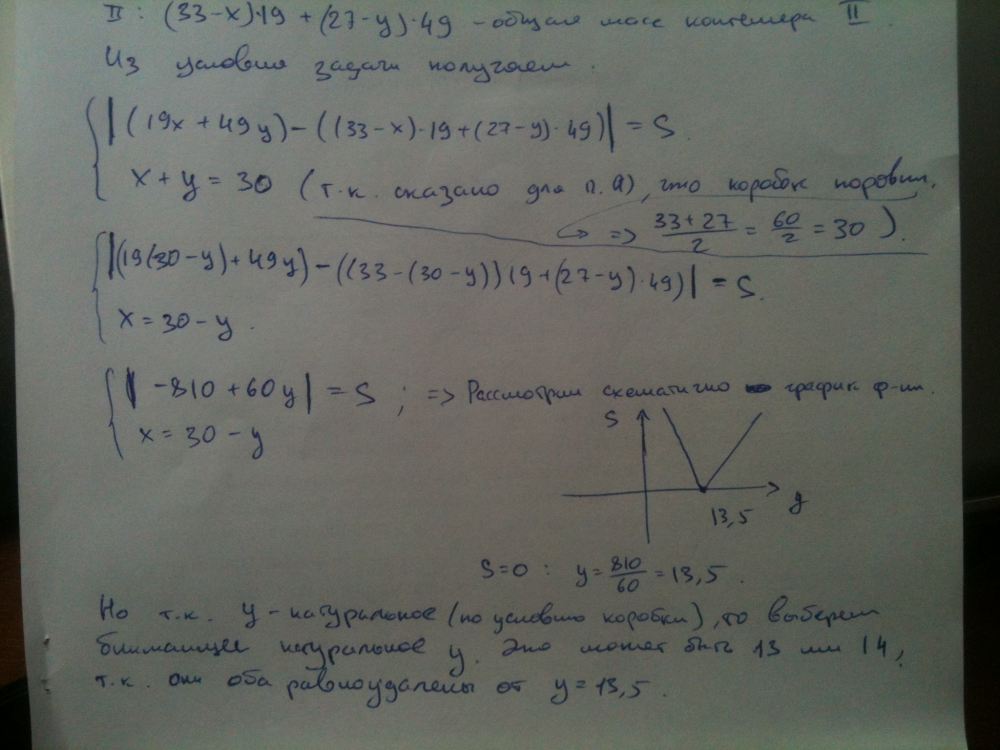 II : (33-x)·19 + (27-y)·49 - общая масс контейнера II.
Из условия задачи получаем.
|(19x + 49y) - ((33-x)·19 + (27-y)·49)| = S.
x + y = 30 (т.к. сказано для п. а), что коробок поровну,
=> (33+27)/2 = 60/2 = 30 ).
|(19(30-y) + 49y) - ((33-(30-y))19 + (27-y)·49)| = S.
x = 30 - y.
| -810 + 60y | = S ; => Рассмотрим схематично график ф-ии.
x = 30 - y
S
y
13,5
S=0 : y = 810/60 = 13,5.
Но т.к. y - натуральное (по условию коробки), то выберем
ближайшее натуральное y. Это может быть 13 или 14,
т.к. они оба равноудалены от y = 13,5.